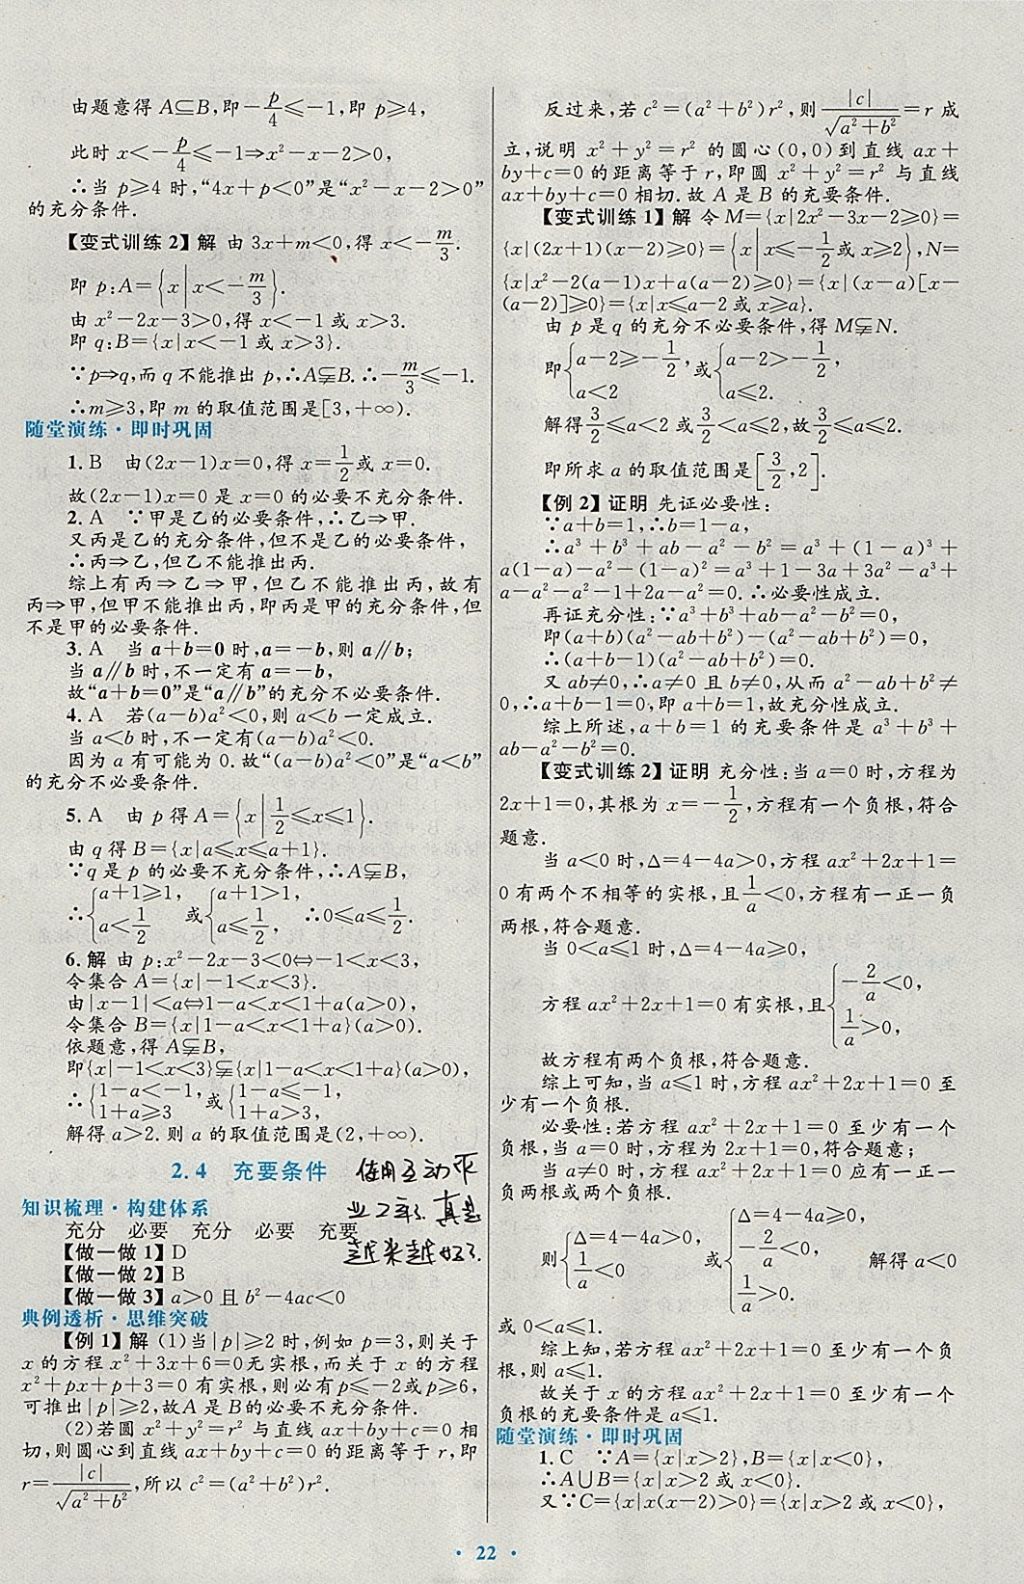 由题意得 A⊆B,即−p/4≤−1,即 p≥4,
此时 x<−p/4≤−1⇒x²−x−2>0,
∴当 p≥4 时,“4x+p<0”是“x²−x−2>0”
的充分条件.
【变式训练 2】解 由 3x+m<0,得 x<−m/3.
即 p:A={x|x<−m/3}.
由 x²−2x−3>0,得 x<−1 或 x>3.
即 q:B={x|x<−1 或 x>3}.
∵p⇒q,而 q 不能推出 p,∴A⫋B.∴−m/3≤−1.
∴m≥3,即 m 的取值范围是[3,+∞).
随堂演练·即时巩固
1.B 由(2x−1)x=0,得 x=1/2或 x=0.
故(2x−1)x=0 是 x=0 的必要不充分条件.
2.A ∵甲是乙的必要条件,∴乙⇒甲.
又丙是乙的充分条件,但不是乙的必要条件,
∴丙⇒乙,但乙不能推出丙.
综上有丙⇒乙⇒甲,但乙不能推出丙,故有
丙⇒甲,但甲不能推出丙,即丙是甲的充分条件,但
不是甲的必要条件.
3.A 当 a+b=0 时,a=−b,则 a∥b;
当 a∥b 时,不一定有 a=−b,
故“a+b=0”是“a∥b”的充分不必要条件.
4.A 若(a−b)a²<0,则 a<b 一定成立.
当 a<b 时,不一定有(a−b)a²<0.
因为 a 有可能为 0.故“(a−b)a²<0”是“a<b”
的充分不必要条件.
5.A 由 p 得 A={x|1/2≤x≤1}.
由 q 得 B={x|a≤x≤a+1}.
∵q 是 p 的必要不充分条件,∴A⫋B,
∴{a+1≥1, a<1/2 或{a+1>1, a≤1/2, ∴0≤a≤1/2.
6.解 由 p:x²−2x−3<0⇔−1<x<3,
令集合 A={x|−1<x<3}.
由|x−1|<a⇔1−a<x<1+a(a>0),
令集合 B={x|1−a<x<1+a}(a>0).
依题意,得 A⫋B,
即{x|−1<x<3}⫋{x|1−a<x<1+a}(a>0),
∴{1−a<−1, 1+a≥3 或{1−a≤−1, 1+a>3,
解得 a>2.则 a 的取值范围是(2,+∞).
2.4 充要条件
使用互动作
业2年了.真是
越来越好了.
知识梳理·构建体系
充分 必要 充分 必要 充要
【做一做 1】D
【做一做 2】B
【做一做 3】a>0 且 b²−4ac<0
典例透析·思维突破
【例 1】解 (1)当|p|≥2 时,例如 p=3,则关于
x 的方程 x²+3x+6=0无实根,而关于 x 的方程
x²+px+p+3=0 有实根,则必有 p≤−2或p≥6,
可推出|p|≥2,故A 是 B的必要不充分条件.
(2)若圆 x²+y²=r² 与直线 ax+by+c=0 相
切,则圆心到直线 ax+by+c=0 的距离等于 r,即
r=|c|/√(a²+b²),所以 c²=(a²+b²)r².
反过来,若 c²=(a²+b²)r²,则|c|/√(a²+b²)=r 成
立,说明 x²+y²=r² 的圆心(0,0)到直线 ax+
by+c=0 的距离等于 r,即圆 x²+y²=r² 与直线
ax+by+c=0 相切.故 A 是 B 的充要条件.
【变式训练 1】解 令 M={x|2x²−3x−2≥0}=
{x|(2x+1)(x−2)≥0}={x|x≤−1/2或 x≥2},N=
{x|x²−2(a−1)x+a(a−2)≥0}={x|(x−a)[x−
(a−2)]≥0}={x|x≤a−2 或 x≥a}.
由 p 是 q 的充分不必要条件,得 M⫋N.
即{a−2≥−1/2, a<2 或{a−2>−1/2, a≤2.
解得3/2≤a<2 或3/2<a≤2,故3/2≤a≤2.
即所求 a 的取值范围是[3/2,2].
【例 2】证明 先证必要性:
∵a+b=1,∴b=1−a,
∴a³+b³+ab−a²−b²=a³+(1−a)³+
a(1−a)−a²−(1−a)²=a³+1−3a+3a²−a³+
a−a²−a²−1+2a−a²=0.∴必要性成立.
再证充分性:∵a³+b³+ab−a²−b²=0,
即(a+b)(a²−ab+b²)−(a²−ab+b²)=0,
∴(a+b−1)(a²−ab+b²)=0.
又 ab≠0,∴a≠0 且 b≠0,从而 a²−ab+b²≠
0,∴a+b−1=0,即 a+b=1,故充分性成立.
综上所述,a+b=1 的充要条件是 a³+b³+
ab−a²−b²=0.
【变式训练 2】证明 充分性:当 a=0 时,方程为
2x+1=0,其根为 x=−1/2,方程有一个负根,符合
题意.
当 a<0 时,Δ=4−4a>0,方程 ax²+2x+1=
0 有两个不相等的实根,且1/a<0,方程有一正一负
两根,符合题意.
当 0<a≤1 时,Δ=4−4a≥0,
方程 ax²+2x+1=0 有实根,且{−2/a<0, 1/a>0,
故方程有两个负根,符合题意.
综上可知,当 a≤1 时,方程 ax²+2x+1=0 至
少有一个负根.
必要性:若方程 ax²+2x+1=0 至少有一个
负根,当 a=0 时,方程为 2x+1=0,符合题意;
当 a≠0 时,方程 ax²+2x+1=0 应有一正一
负两根或两个负根.
则{Δ=4−4a>0, 1/a<0 或{Δ=4−4a≥0, −2/a<0, 1/a>0. 解得 a<0
或 0<a≤1.
综上知,若方程 ax²+2x+1=0 至少有一个负
根,则 a≤1.
故关于 x 的方程 ax²+2x+1=0 至少有一个
负根的充要条件是 a≤1.
随堂演练·即时巩固
1.C ∵A={x|x>2},B={x|x<0},
∴A∪B={x|x>2 或 x<0}.
又∵C={x|x(x−2)>0}={x|x>2 或 x<0},
· 22 ·